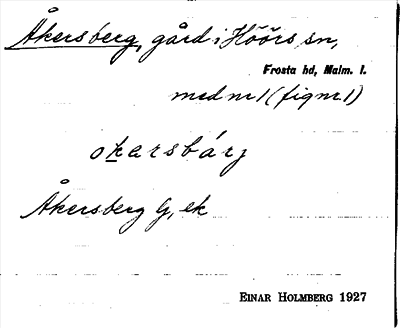 Åkersberg, gård i Höörs sn,
Frosta hd, Malm. l.
med nr 1 (fig nr 1)
okarsbárj
Åkersberg G, ek
EINAR HOLMBERG 1927